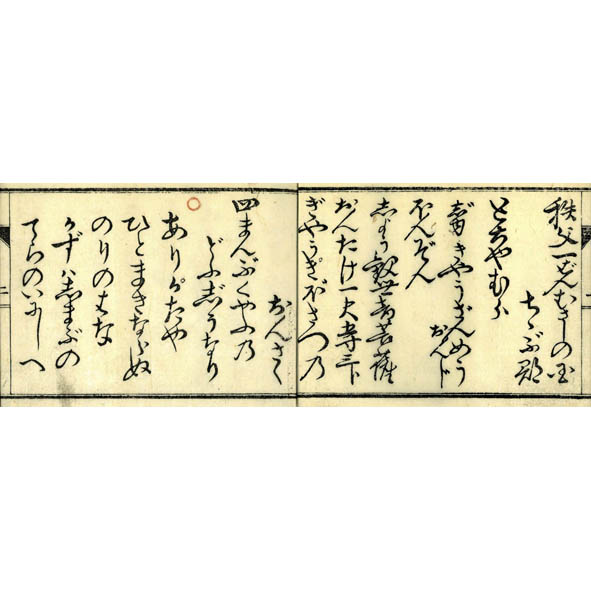 秩父一ばんむさしの国
ちゝぶ郡
とちやむら
きやうざんめう
おんじ
ほんぞん
志やう観世音菩薩
おんたけ一尺
ぎやうきぼさつの
おんさく
四まんぶくやふの
どふ志うなり
ありがたや
ひとまきならぬ
のりのはな
かずハ志まぶの
てらのいにしへ